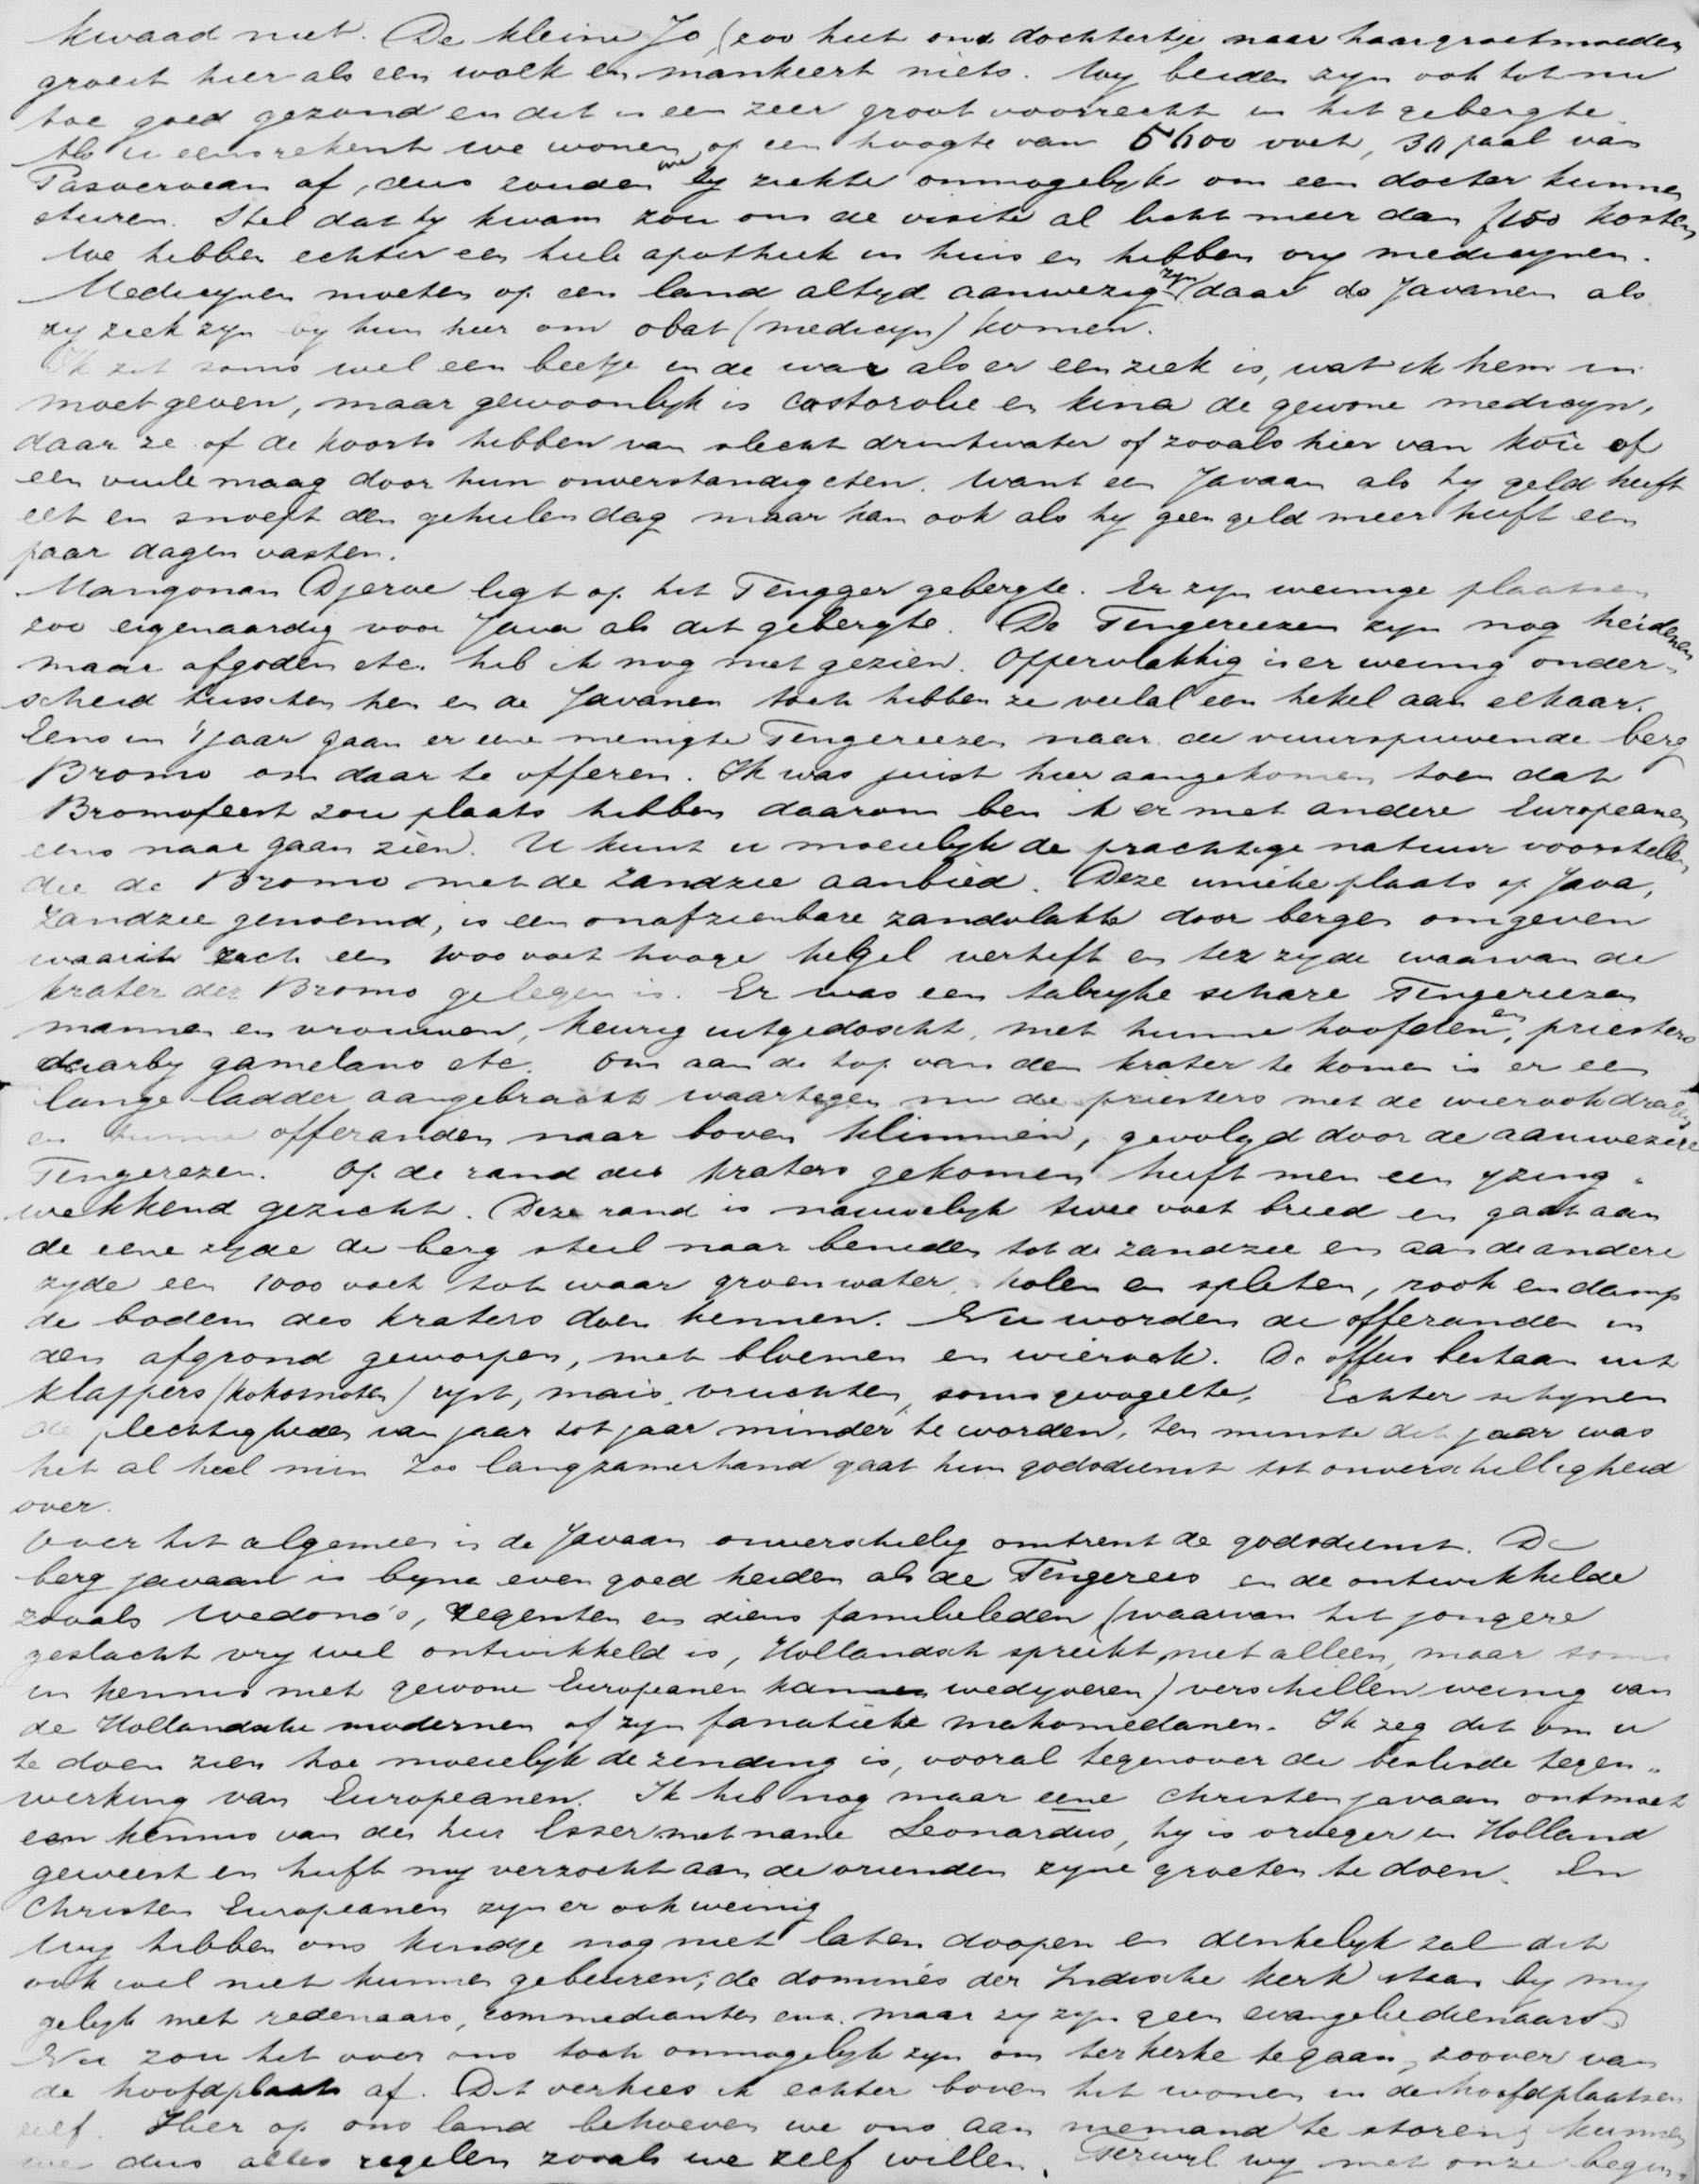 kwaad niet. De kleine Jo (zoo heet ons dochtertje naar haar grootmoeder
groeit hier als een wolk en mankeert niets. Wy beiden zyn ook tot nu
toe goed gezond en dit is een zeer groot voorrecht in het gebergte.
Als u eens rekent we wonen op een hoogte van 5600 voet, 30 paal van
Pasoeroean af, dus zouden we by ziekte onmogelyk om een docter kunnen
sturen. Stel dat hy kwam zou ons de visite al licht meer dan f100 kosten
We hebben echter een heele apotheek in huis en hebben vry medicynen.
Medicynen moeten op een land altyd aanwezig zyn (daar de Javanen als
zy ziek zyn by hun heer om obat (medicyn) komen.
Ik zit soms wel een beetje in de war als er een ziek is, wat ik hem in
moet geven, maar gewoonlyk is castorolie en kina de gewone medicyn,
daar ze of de koorts hebben van slecht drinkwater of zooals hier van kou of
een vuile maag door hun onverstandig eten. Want een Javaan als hy geld heeft
eet en snoept den geheelen dag maar kan ook als hy geen geld meer heeft een
paar dagen vasten.
Mangonan Djeroe ligt op het Tengger gebergte. Er zyn weinige plaatsen
zoo eigenaardig voor Java als dit gebergte. De Tengereezen zyn nog heidenen
maar afgoden etc. heb ik nog niet gezien. Oppervlakkig is er weinig onder-
scheid tusschen hen en de Javanen toch hebben ze veelal een hekel aan elkaar.
Eens in 't jaar gaan er eene menigte Tengereezen naar de vuurspuwende berg
Bromo om daar te offeren. Ik was juist hier aangekomen toen dat
Bromofeest zou plaats hebben daarom ben ik er met andere Europeanen
eens naar gaan zien. U kunt u moeielyk de prachtige natuur voorstellen
die de Bromo met de Zandzee aanbied. Deze unieke plaats op Java,
Zandzee genoemd, is een onafzienbare zandvlakte door bergen omgeven
waaruit zich een 1000 voet hooge heuvel verheft en ter zyde waarvan de
krater der Bromo gelegen is. Er was een talryke schare Tengereezen
mannen en vrouwen, keurig uitgedoscht, met hunne hoofden en priesters
daarby gamelans etc. om aan de top van den krater te komen is er een
lange ladder aangebracht waartegen nu de priesters met de wierookdragers
en hunne offeranden naar boven klimmen, gevolgd door de aanwezige
Tengerezen. Op de rand des kraters gekomen heeft men een yzing-
wekkend gezicht. Deze rand is nauwelyk twee voet breed en gaat aan
de eene zyde de berg steil naar beneden tot de zandzee en aan de andere
zyde een 1000 voet tot waar groen water, holen en spleten, rook en damp
de bodem des kraters doen kennen. Nu worden de offeranden in
den afgrond geworpen, met bloemen en wierook. De offers bestaan uit
klappers (kokosnoten) ryst, mais, vruchten, soms gevogelte. Echter schynen
de plechtigheden van jaar tot jaar minder te worden, ten minste dit jaar was
het al heel min Zoo langzamerhand gaat hun godsdienst tot onverschilligheid
over.
Over het algemeen is de Javaan onverschillig omtrent de godsdienst. De
berg javaan is byna even goed heiden als de Tengerees en de ontwikkelde
zooals Wedono's, Regenten en diens familieleden (waarvan het jongere
geslacht vry wel ontwikkeld is, Hollandsch spreekt, niet alleen, maar soms
in kennis met gewone Europeanen kunnen wedyveren) verschillen weinig van
de Hollandsche modernen of zyn fanatieke mahomedanen. Ik zeg dit om u
te doen zien hoe moeielyk de zending is, vooral tegenover de besliste tegen-
werking van Europeanen. Ik heb nog maar eene christen javaan ontmoet
een kennis van den heer Esser met name Leonardus, hy is vroeger in Holland
geweest en heeft my verzocht aan de vrienden zyne groeten te doen. En
Christen Europeanen zyn er ook weinig
Wy hebben ons kindje nog niet laten doopen en denkelyk zal dit
ook wel niet kunnen gebeuren; de dominés der Indische kerk staan by my
gelyk met redenaars, commedianten enz. maar zy zyn geen evangeliedienaars.
Nu zou het voor ons toch onmogelyk zyn om ter kerke te gaan, zoo ver van
de hoofdplaats af. Dit verkies ik echter boven het wonen in de hoofdplaatsen
zelf. Hier op ons land behoeven we ons aan niemand te storen, kunnen
we dus alles regelen zooals we zelf willen. Terwyl wy met onze begin